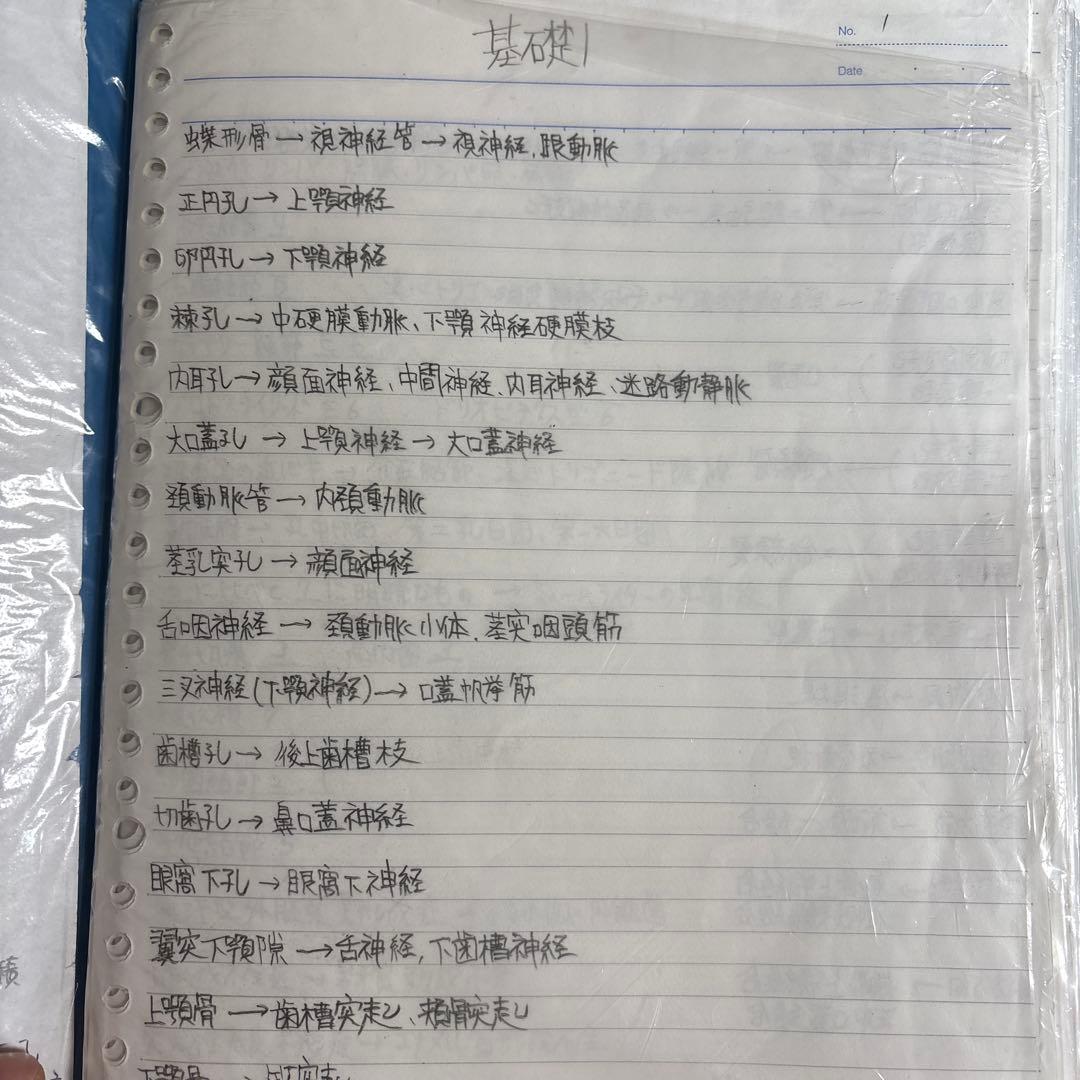 基礎1
No. 1
Date
蝶形骨→視神経管→視神経,眼動脈
正円孔→上顎神経
卵円孔→下顎神経
棘孔→中硬膜動脈、下顎神経硬膜枝
内耳孔→顔面神経、中間神経、内耳神経、迷路動静脈
大口蓋孔→上顎神経→大口蓋神経
頚動脈管→内頚動脈
茎乳突孔→顔面神経
舌咽神経→頚動脈小体、茎突咽頭筋
三叉神経(下顎神経)→口蓋帆挙筋
歯槽孔→後上歯槽枝
切歯孔→鼻口蓋神経
眼窩下孔→眼窩下神経
翼突下顎隙→舌神経,下歯槽神経
上顎骨→歯槽突起、頬骨突起
下顎骨→